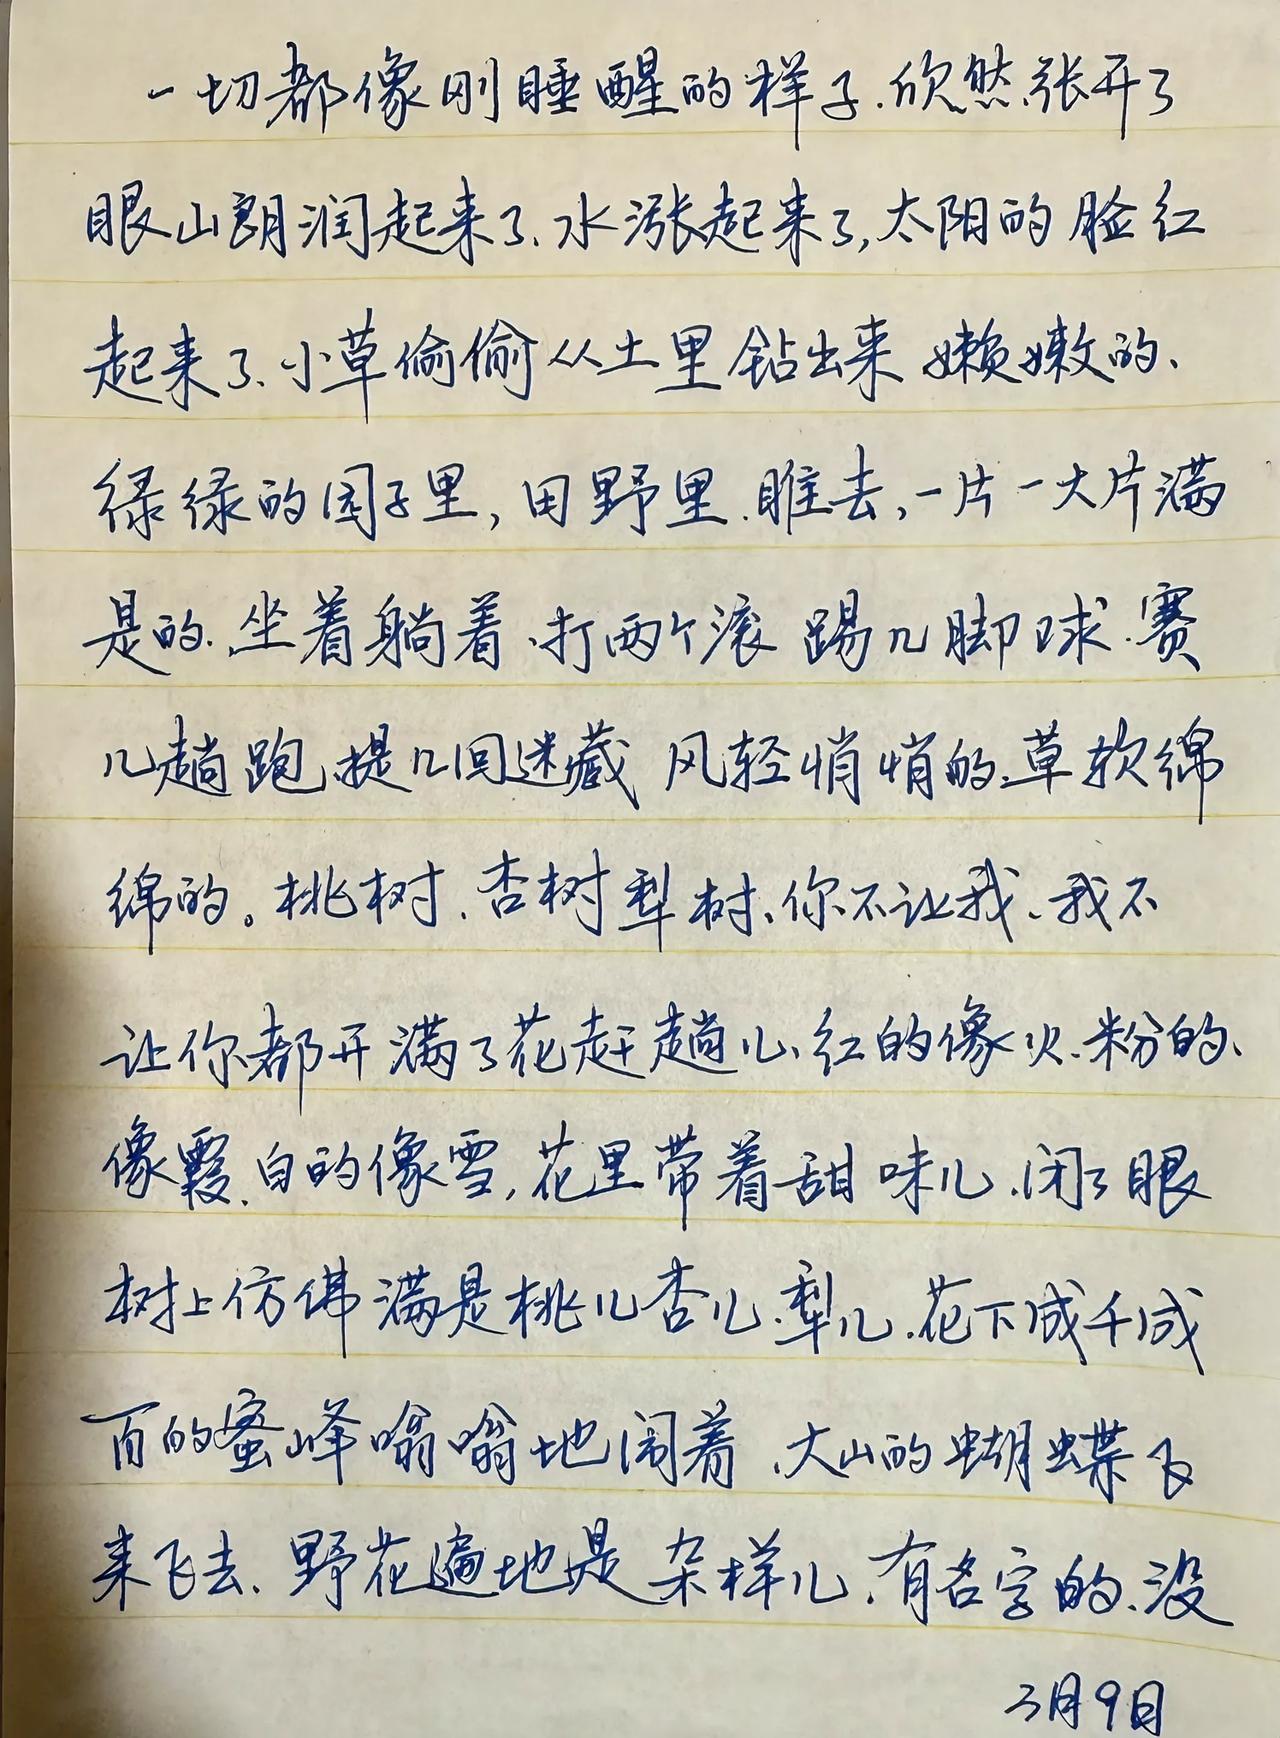 一切都像刚睡醒的样子、欣然张开了
眼山朗润起来了、水涨起来了,太阳的脸红
起来了、小草偷偷从土里钻出来 嫩嫩的、
绿绿的园子里,田野里、睢去,一片一大片满
是的、坐着躺着、打两个滚 踢几脚球、赛
几趟跑、捉几回迷藏 风轻悄悄的、草软绵
绵的。桃树、杏树梨树、你不让我、我不
让你都开满了花赶趟儿、红的像火、粉的、
像霞、白的像雪,花里带着甜味儿、闭了眼
树上仿佛满是桃儿杏儿、梨儿、花下成千成
百的蜜峰嗡嗡地闹着、大山的蝴蝶飞
来飞去、野花遍地是杂样儿、有名字的、没
3月9日